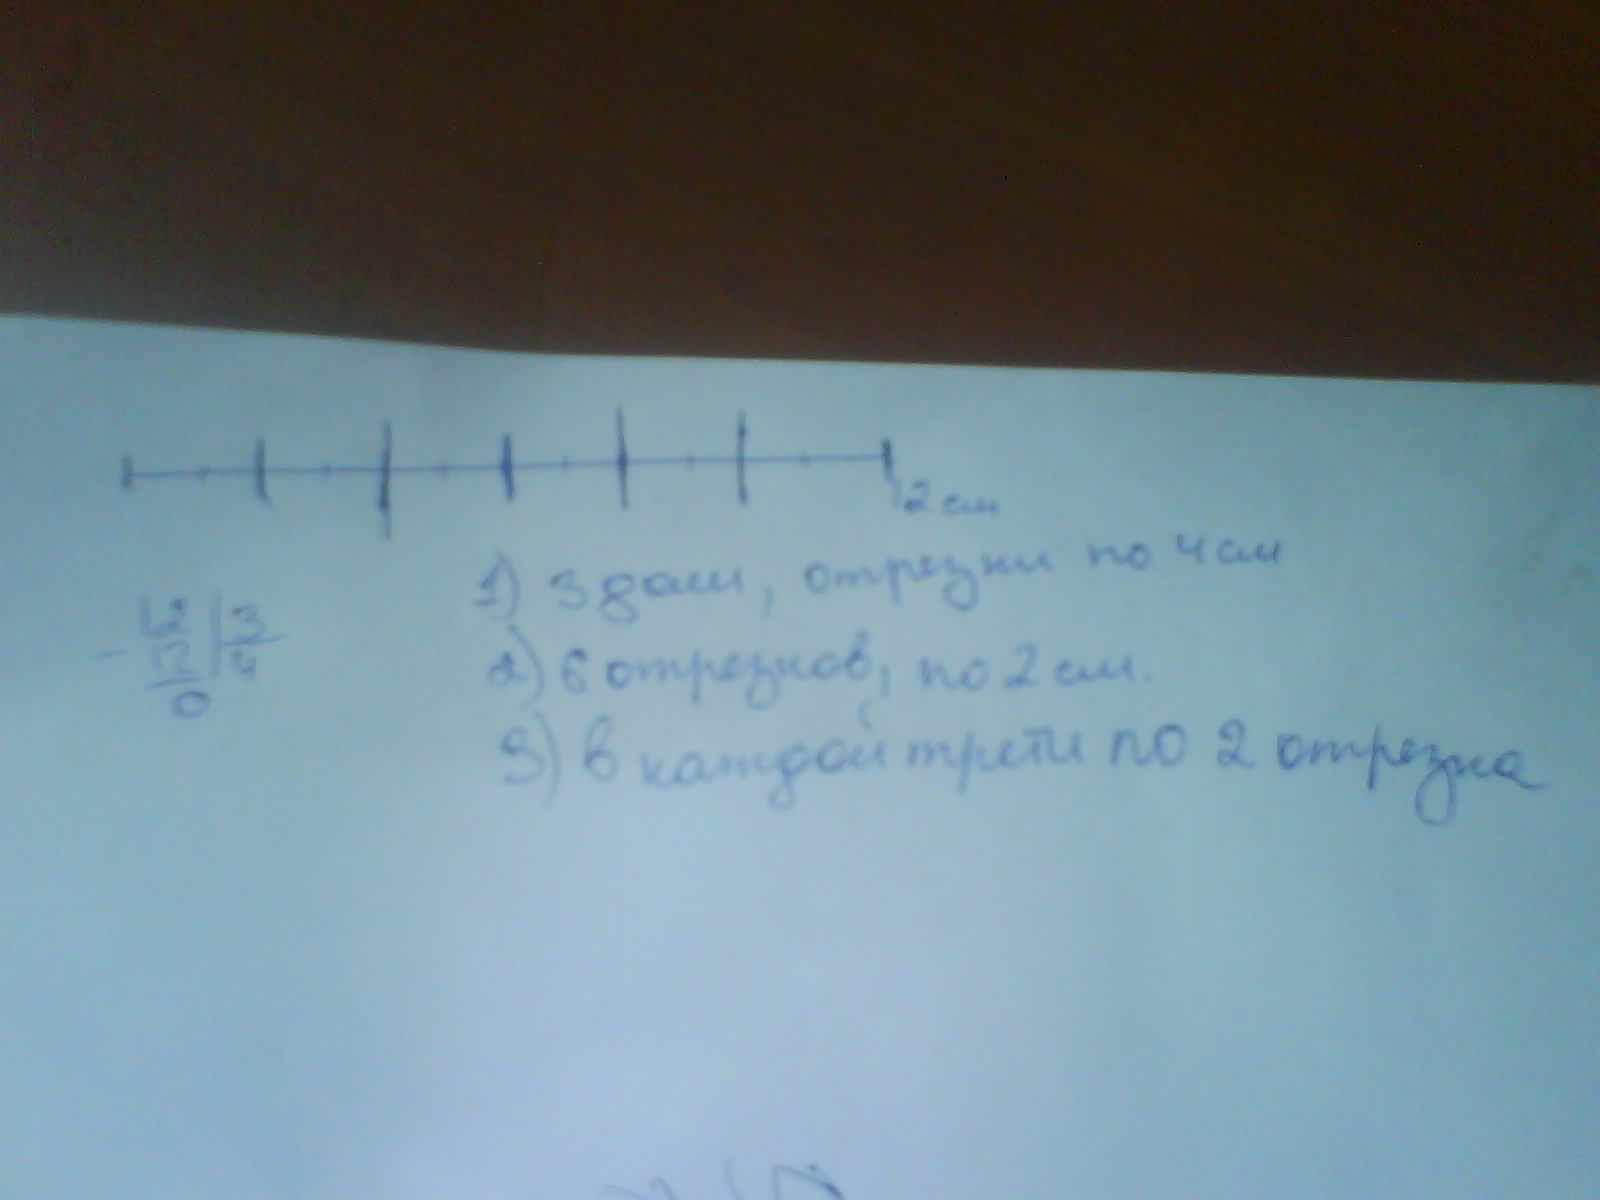 12 см
1) 3 доли, отрезки по 4 см
12 | 3
- 12 | 4
0
2) 6 отрезков, по 2 см.
3) в каждой трети по 2 отрезка